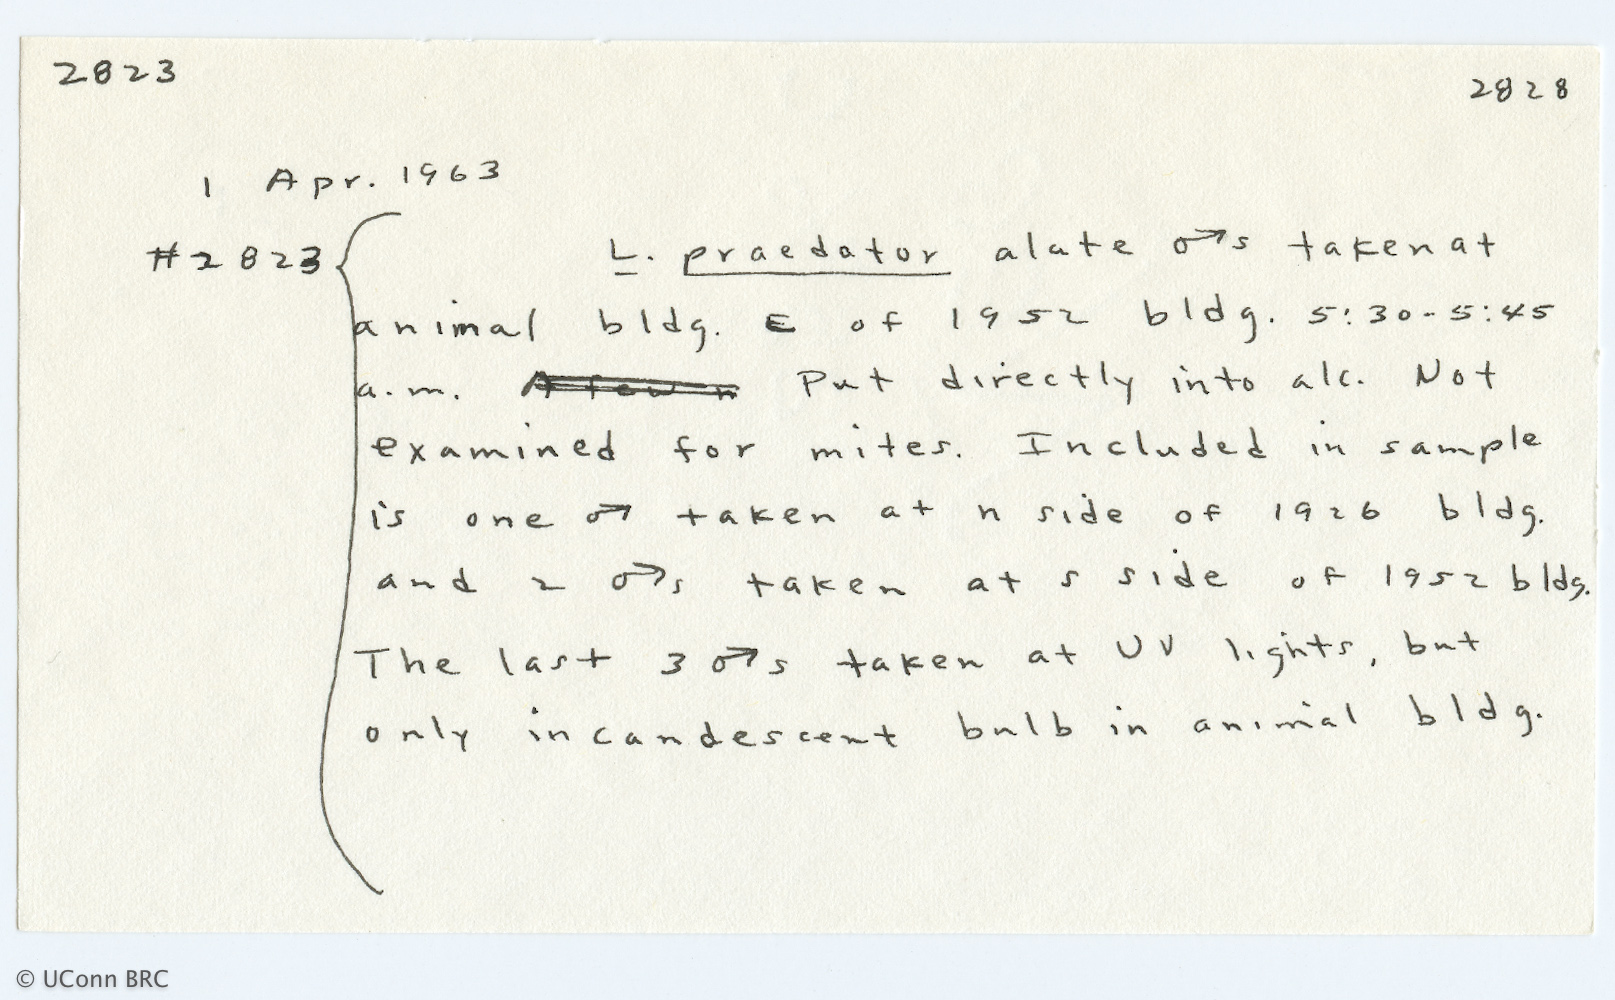 2823 2828
1 Apr. 1963
#2823 L. praedator alate ♂s taken at
animal bldg. E of 1952 bldg. 5:30-5:45
a.m. A few n Put directly into alc. Not
examined for mites. Included in sample
is one ♂ taken at n side of 1926 bldg.
and 2 ♂s taken at s side of 1952 bldg.
The last 3 ♂s taken at UV lights, but
only incandescent bulb in animal bldg.
© UConn BRC